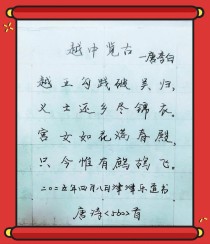 越中览古
—唐李白
越王勾践破吴归，
义士还乡尽锦衣。
宫女如花满春殿，
只今惟有鹧鸪飞。
二〇二五年四月八日津津乐道书
唐诗<560>首